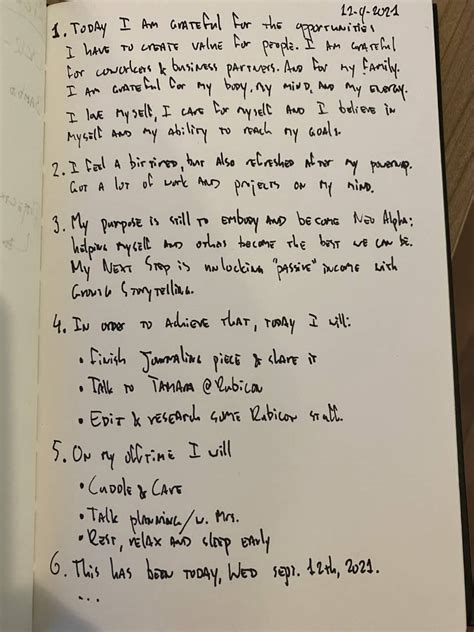 12-9-2021
1. Today I am grateful for the opportunities
I have to create value for people. I am grateful
for coworkers & business partners. And for my family.
I am grateful for my body, my mind, and my energy.
I love myself, I care for myself and I believe in
myself and my ability to reach my goals.
2. I feel a bit tired, but also refreshed after my powernap.
Got a lot of work and projects on my mind.
3. My purpose is still to embody and become Neo Alpha:
helping myself and others become the best we can be.
My next step is unlocking "passive" income with
Growig Storytelling.
4. In order to achieve that, today I will:
• Finish Journaling piece & share it
• Talk to Tamara @Rubicon
• Edit & research some Rubicon stuff.
5. On my offtime I will
• Cuddle & Cave
• Talk planning/w. Mrs.
• Rest, relax and sleep early
6. This has been today, Wed sept. 12th, 2021.
...